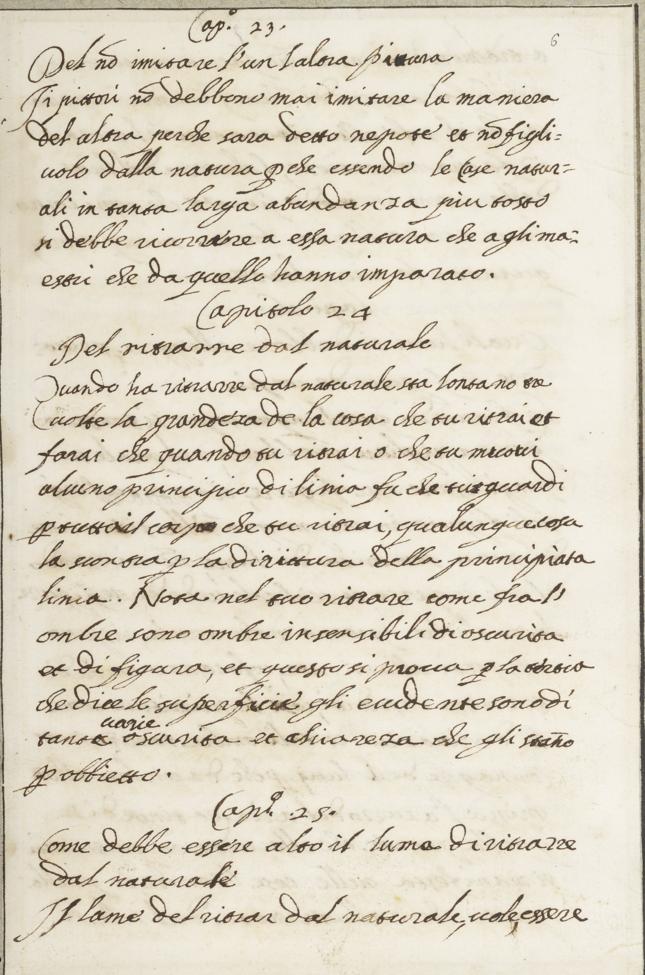 Cap.º 23.
6
Del nō imitare l'un l'altra pittura
Ji pittori nō debbono mai imitare la maniera
del altra perche sara detto nepote et nō figli=
uolo dalla natura p̱che essendo le Cose natur=
ali in tanta larga abundanza piu tosto
si debbe ricorrere a essa natura che agli ma=
estri che da quello hanno imparato.
Capitolo 24
Del ritrarre dal naturale
Quando ha ritrarre dal naturale sta lontano tre
uolte la grandeza de la cosa che tu ritrai et
farai che quando tu ritrai o che tu muoui
alcuno principio di linia fa che tu guardi
p̱ tutto il corpo che tu ritrai, qualunque cosa
la scontra p̱ la dirittura della principiata
linia. Nota nel tuo ritrare come fra l'
ombre sono ombre insensibili di oscurita
et di figura, et questo si proua p̱ la
che dice le superficie gli euidente sono di
tante uarie oscurita et chiareza che gli stāno
p̱ obbietto.
Cap.º 25.
Come debbe essere alto il lume di ritrarre
dal naturale
Jl lume del ritrar dal naturale, uole essere